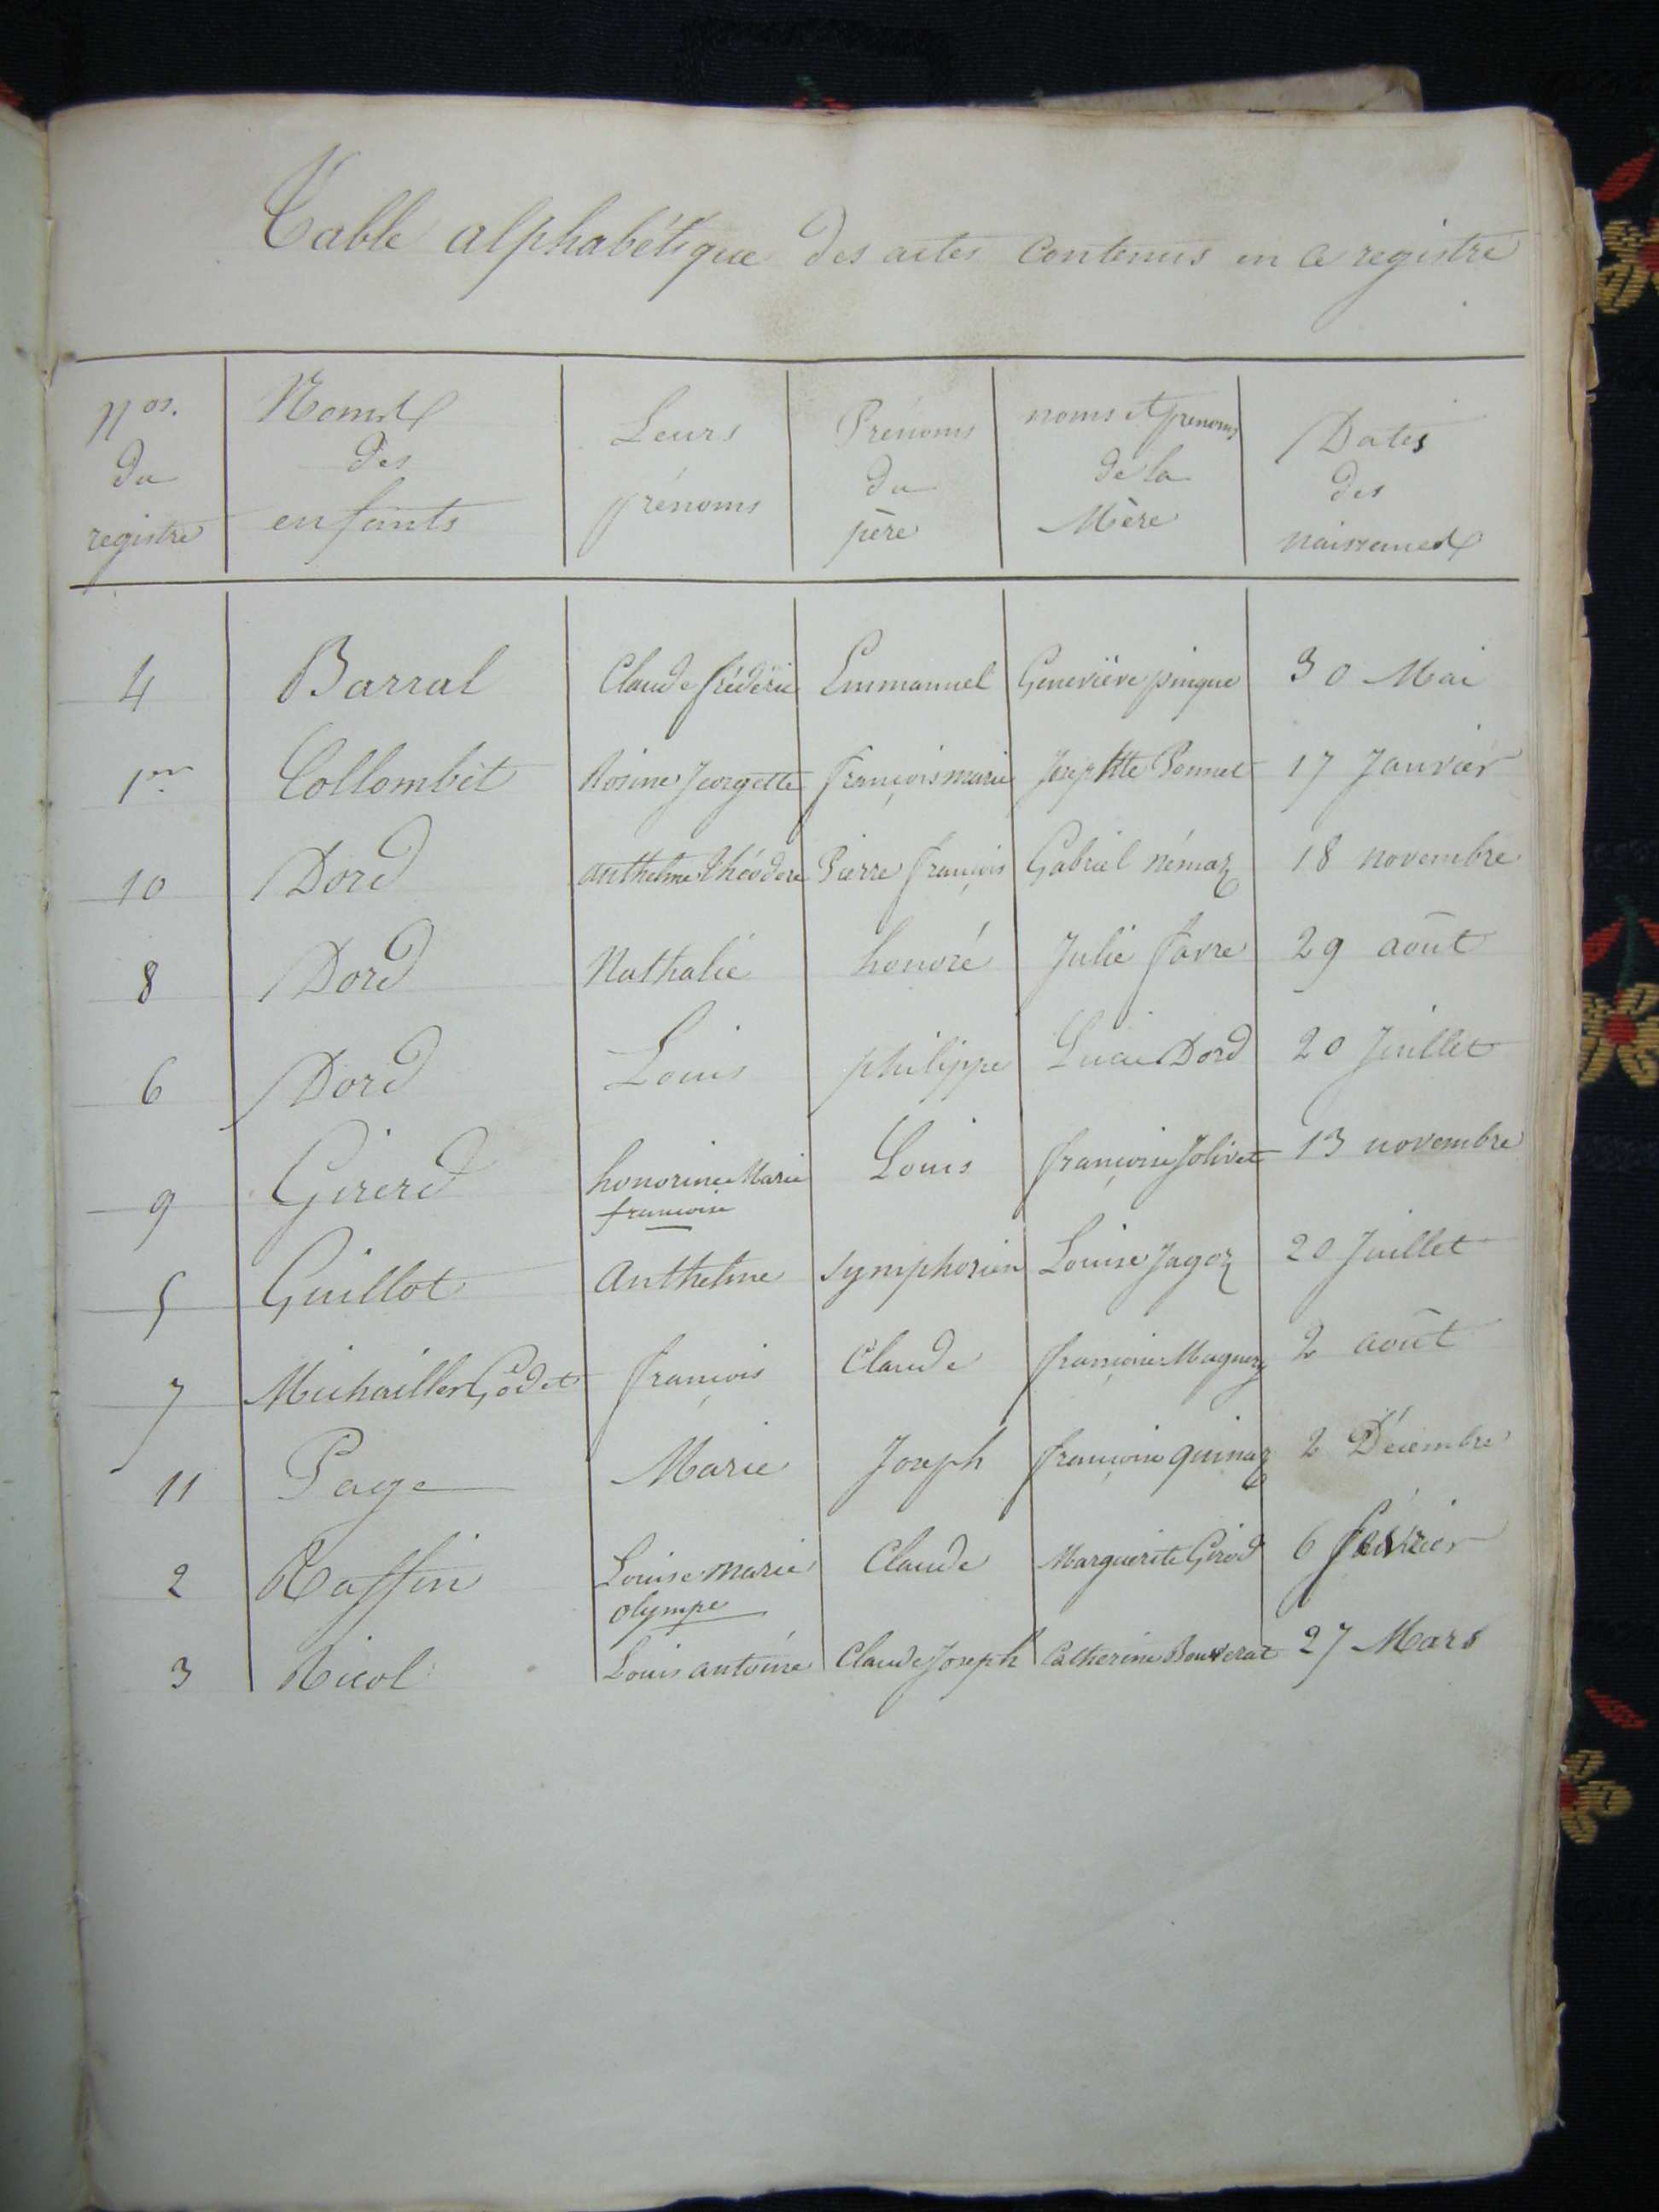 Table alphabétique des actes contenus en ce registre
Nos. du registre | Noms des enfants | Leurs prénoms | Prénoms du père | noms et prenoms de la Mère | Dates des naissances
4 Barral Claude fréderic Emmanuel Geneviève pingue 30 Mai
1er Collombet Rosine Jeorgette françois marie Josephte Ponnet 17 Janvier
10 Dord anthelme théodore Pierre françois Gabriel némoz 18 novembre
8 Dord Nathalie honoré Julie favre 29 août
6 Dord Louis philippe Lucie Dord 20 Juillet
9 Girerd honorine Marie Louis françoise Jolivet 13 novembre
françoise
5 Guillot Anthelme Symphorien Louise Jagoz 20 Juillet
7 Michailler Godet françois Claude françoise 2 août
11 Page Marie Joseph françoise quinaz 2 Décembre
2 Raffin Louise marie Claude Marguerite Girod 6 février
olympe
3 Ricol Louis antoine Claude Joseph Catherine Bouverat 27 Mars